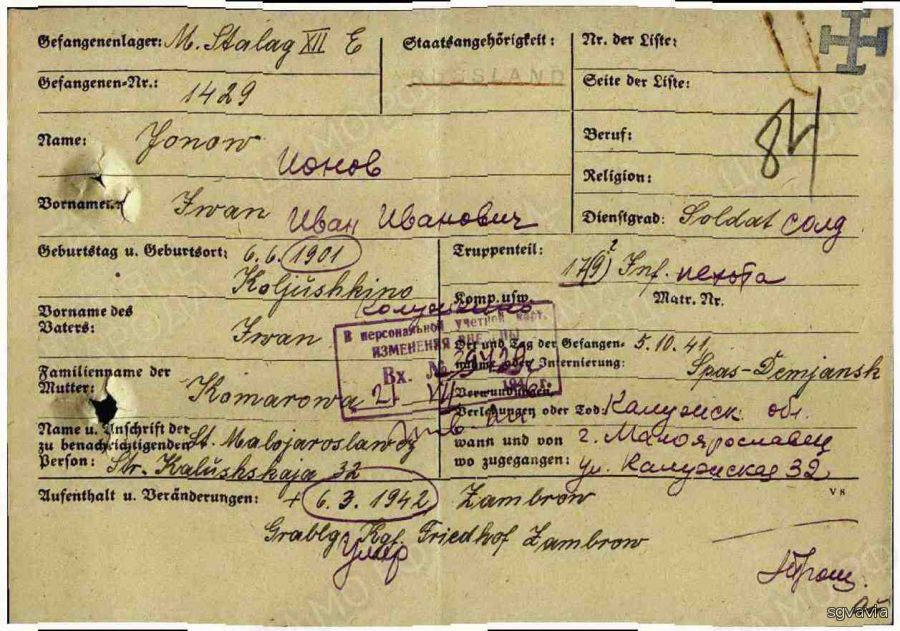 Gefangenenlager: M. Stalag XII E
Staatsangehörigkeit:
RUSSLAND
Nr. der Liste:
Gefangenen-Nr.: 1429
Seite der Liste:
84
Name: Jonow
Ионов
Beruf:
Religion:
Vorname: Iwan Иван Иванович
Dienstgrad: Soldat солд
Geburtstag u. Geburtsort: 6.6.1901
Koljushkino
Колюшкино
Truppenteil:
179) 2 Inf. пехота
Komp. usw.
Matr. Nr.
Vorname des
Vaters: Iwan
В персональной учетной карт.
ИЗМЕНЕНИЯ
Вх. №
Der und Tag der Gefangen- 5.10.41
nahme oder Internierung: Spas-Demjansk
Familienname der
Mutter: Komarowa
21 VII 194 г.
Verwundungen,
Verletzungen oder Tod: Калужск обл.
Name u. Anschrift der
zu benachrichtigenden St. Malojaroslawez
Person: Str. Kalushskaja 32
wann und von г. Малоярославец
wo zugegangen: ул. Калужская 32
Aufenthalt u. Veränderungen: + 6.3.1942 Zambrow
V 8
Grablg. Kgf. Friedhof Zambrow
Умер
sgvavia